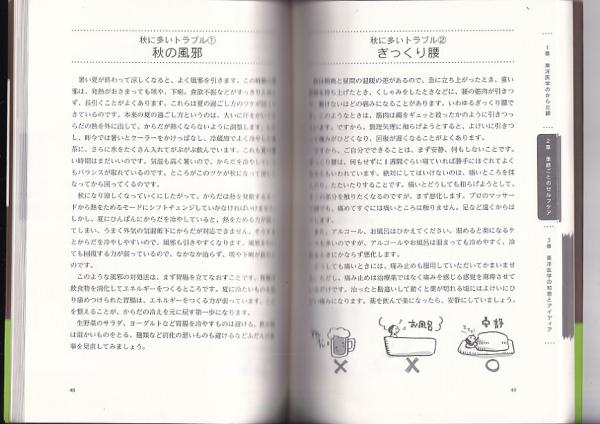 秋に多いトラブル①
秋の風邪
暑い夏が終わって涼しくなると、よく風邪を引きます。この時期の風
邪は、発熱がおさまっても咳や、下痢、食欲不振などが
ず、長引くことがよくあります。これらは夏の過ごし方のツケが
きているのです。本来の夏の過ごし方というのは、大いに汗をかい
らだの熱を外に出して、からだが熱くならないように調整します。
し、昨今では暑いとクーラーをがんがんかけて、冷蔵庫でよく冷やし
茶に、さらに氷をたくさん入れてがぶがぶ飲んでいます。これも夏の
い時期はまだいいのです。気温も高く暑いので、からだを冷やして
もバランスが取れているのです。ところがこのツケが秋になって
なってから回ってくるのです。
秋になり涼しくなっていくにしたがって、からだは熱を発散する
ードから熱をためるモードにシフトチェンジしていかなければいけませ
しかし、夏にひんぱんにからだを冷やしていると、熱をためる力が
てしまい、うまく外気の気温低下にからだが対応できません。そう
とからだを冷やしやすいので、風邪も引きやすくなります。風邪
ても回復する力が弱っているので、なかなか治らず、咳や下痢が
のです。
このような風邪の対処法は、まず胃腸を立てなおすことです。胃腸
飲食物を消化してエネルギーをつくるところです。夏に冷たいものを
り痛めつけられた胃腸は、エネルギーをつくる力が弱っています。
を整えることが、からだの冷えを元に戻す第一歩になります。
生野菜のサラダ、ヨーグルトなど胃腸を冷やすものは避ける、飲
は温かいものをとる、麺類など消化の悪いものも避けるなどふだんの
事を見直してみましょう。
48
秋に多いトラブル②
ぎっくり腰
朝晩と昼間の温暖の差があるので、急に立ち上がったとき、重い
を持ち上げたとき、くしゃみをしたときなどに、腰の筋肉が引き
動けないほどの痛みになることがあります。いわゆるぎっくり腰で
このようなときは、筋肉は縄をギュッと絞ったかのように引きつっ
ます。ですから、無理矢理に揺らげようとすると、よけいに引きつ
痛みがひどくなり、回復が遅くなることがよくあります。
から、ご自分でできることは、まず安静、何もしないことです。
くり腰は、何もせずに１週間ぐらい寝ていれば勝手にほぐれてよく
ます。絶対にしてはいけないのは、痛いところを揉
たたいたりすることです。痛いとどうしても揉らげようとして、
の部分を触りたくなるのですが、まず悪化します。プロのマッサー
でも、痛めてすぐには痛いところは触りません。足など遠くからほ
ます。
また、アルコール、お風呂はひかえてください。温めると楽になるケ
も多いのですが、アルコールやお風呂は温まっても冷めやすく、冷
ときにかならず悪化します。
どうしても痛いときには、痛み止めも服用していただいてかまいませ
ただし、痛み止めは治療薬ではなく痛みを感じる感覚を麻痺させて
だけです。治ったと勘違いして動くと薬が切れる頃にはよけいに
くなっています。薬を飲んで楽になったら、安静にしていましょう。
お風呂
安静
49
1章 東洋医学のからだ観
2章 季節ごとのセルフケア
3章 東洋医学の知恵とアイディア